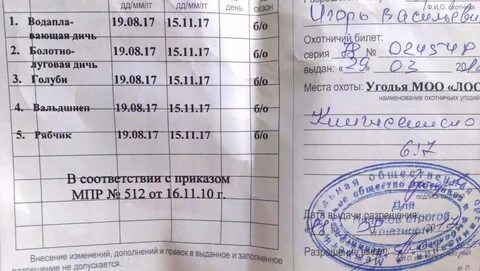 дд/мм/гг дд/мм/гг день сезон
1. Водапла-
вающая дичь 19.08.17 15.11.17 б/о
2. Болотно-
луговая дичь 19.08.17 15.11.17 б/о
3. Голуби 19.08.17 15.11.17 б/о
4. Вальдшнеп 19.08.17 15.11.17 б/о
5. Рябчик 19.08.17 15.11.17 б/о
В соответствии с приказом
МПР № 512 от 16.11.10 г.
Внесение изменений, дополнений и правок в выданное и заполненное
разрешение не допускается.
Игорь Васильеви
Ф.И.О. охотника
Охотничий билет:
серия 78 № 024548
выдан: «29» 03
Места охоты: Угодья МОО «ЛОС
наименование охотничьих угодий
617
Для
Дата выдачи разрешения
М.П.